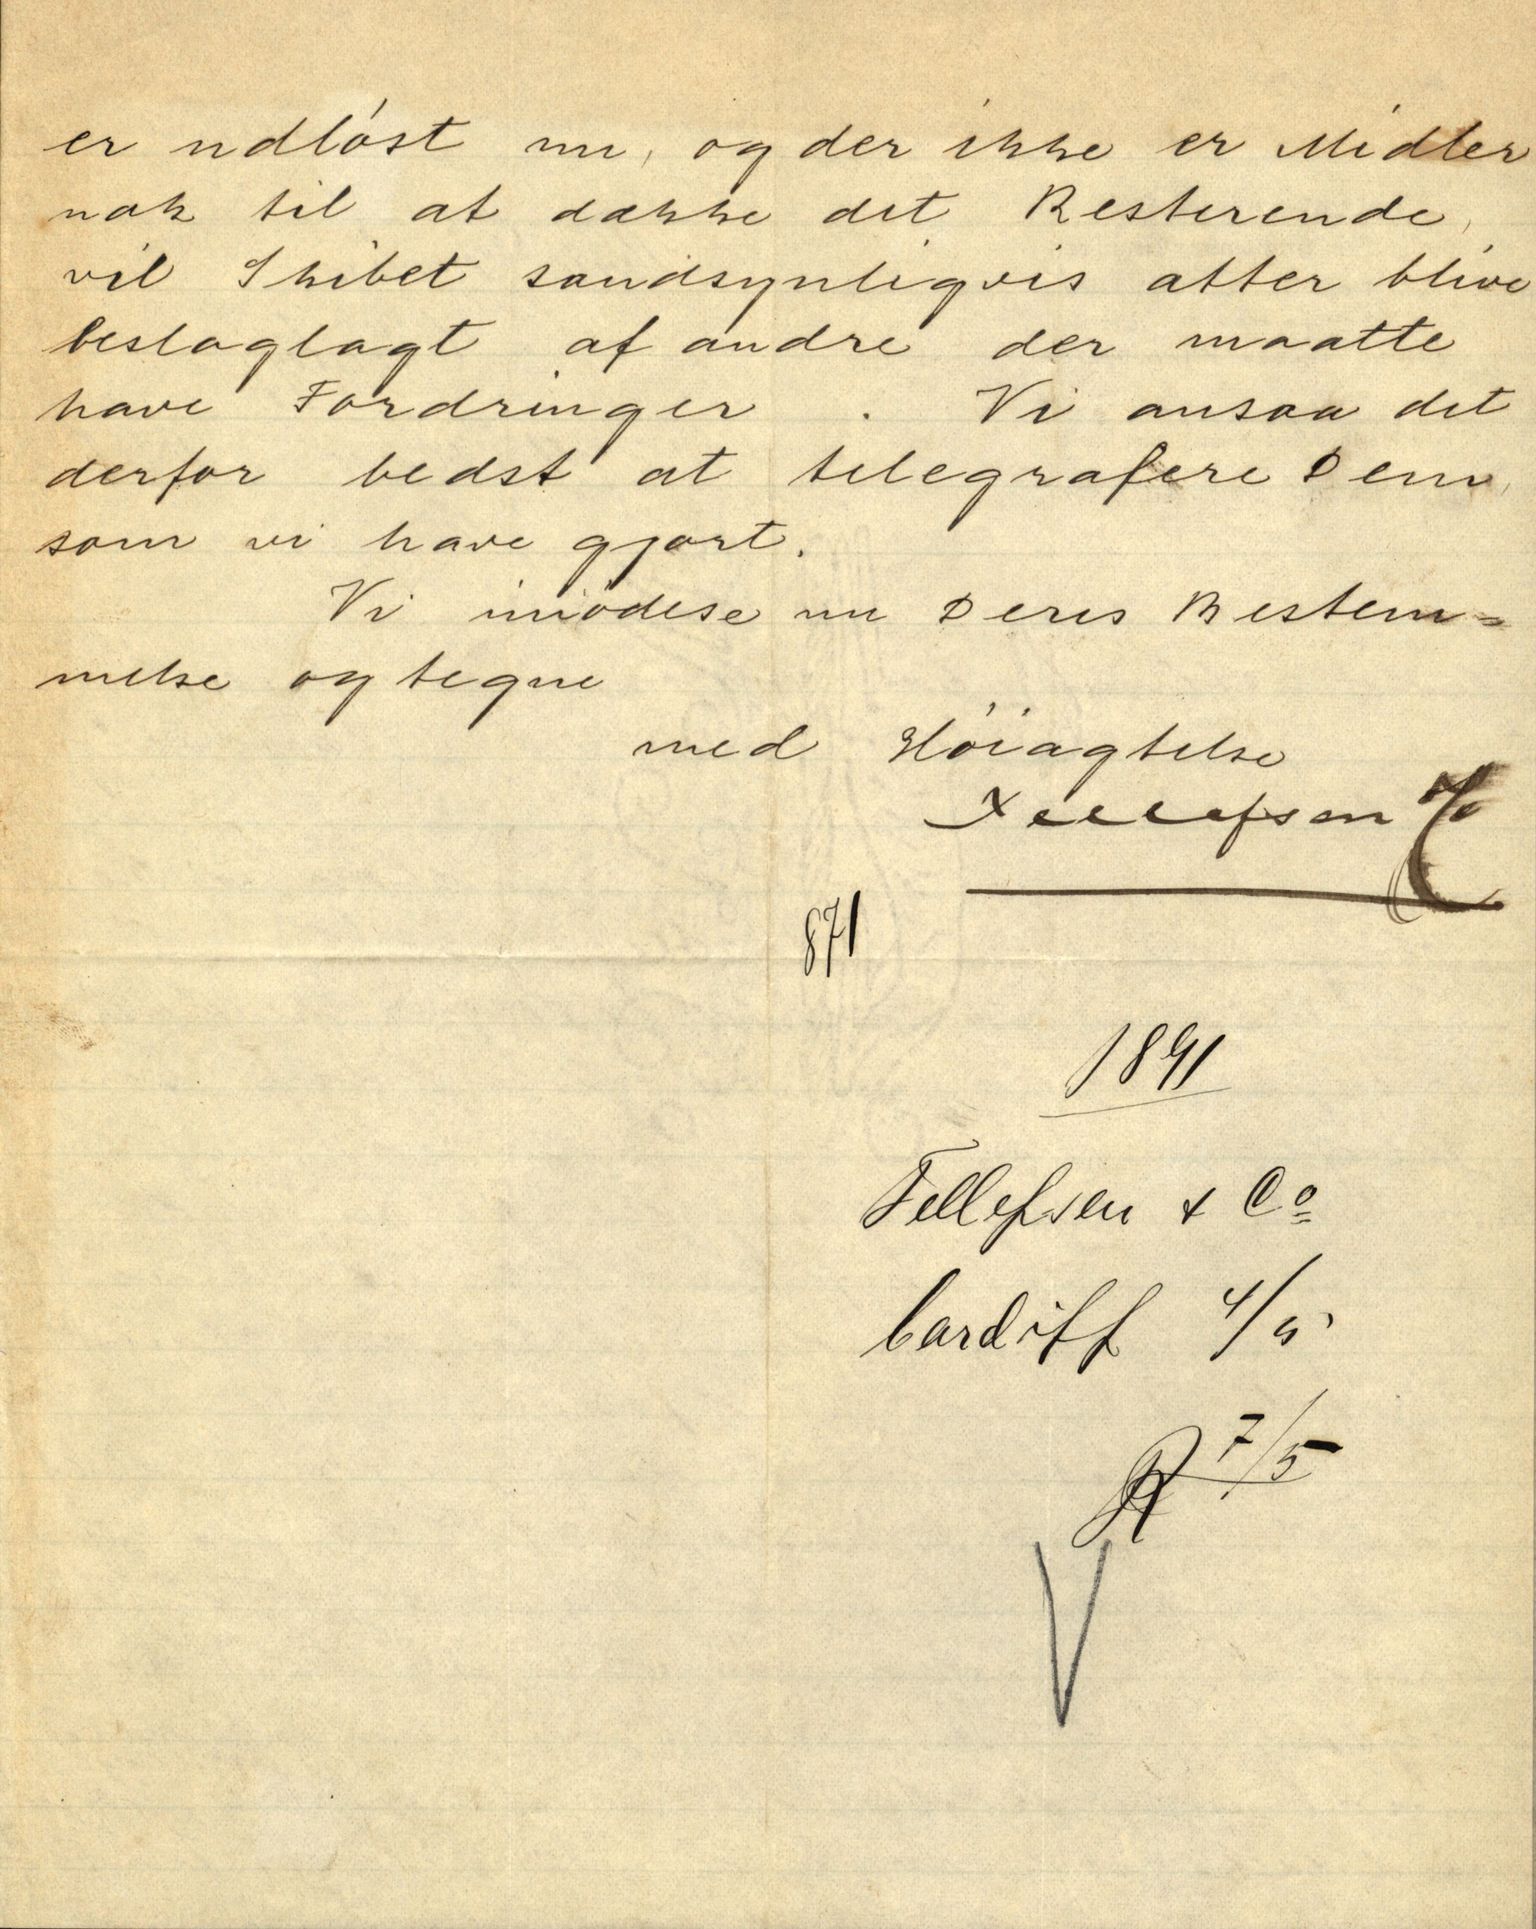 er udløst nu, og der ikke er Midler
nok til at dække det Resterende,
vil Skibet sandsynligvis atter blive
beslaglagt af andre der maatte
have Fordringer . Vi ansaa det
derfor bedst at telegrafere Dem,
som vi have gjort.
Vi imødese nu Deres Bestem=
melse og tegne
med Høiagtelse
Tellefsen & Co
871
1891
Tellefsen & Co
Cardiff 4/5
R 7/5